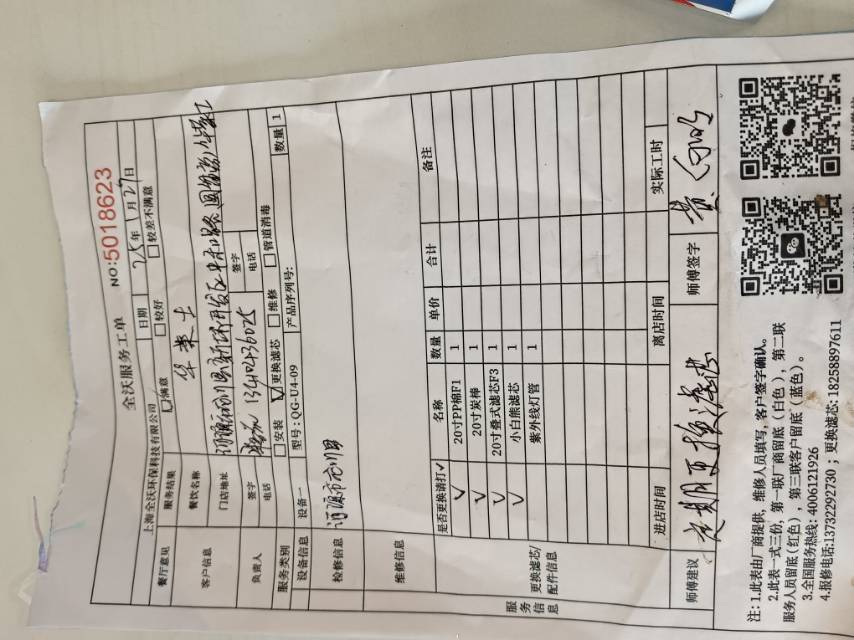 全沃服务工单
NO:5018623
上海全沃环保科技有限公司 日期 25年1月27日
餐厅意见 服务结果 ☑满意 □较好 □较差不满意
客户信息 餐饮名称 华莱士
门店地址
负责人 签字 签字
电话 13414436025 电话
服务类别 □安装 ☑更换滤芯 □维修 □管道消毒
设备信息 设备一 型号:QG-U4-09 产品序列号: 数量 1
检修信息 河源市
维修信息
服务信息 更换滤芯/配件信息
是否更换请打✓ 名称 数量 单价 合计 备注
✓ 20寸PP棉F1 1
✓ 20寸炭棒 1
✓ 20寸叠式滤芯F3 1
✓ 小白熊滤芯 1
紫外线灯管 1
进店时间 离店时间 实际工时
师傅建议 定期更换滤芯 师傅签字 黄
注: 1.此表由厂商提供,维修人员填写,客户签字确认。
2.此表一式三份,第一联厂商留底(白色),第二联
服务人员留底(红色),第三联客户留底(蓝色)。
3.全国服务热线: 4006121926
4.报修电话:13732292730 ;更换滤芯: 18258897611